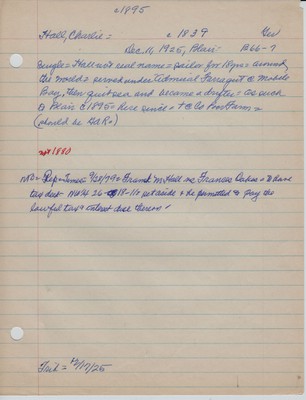 c1895
Hall, Charlie = c 1839 Ger
Dec. 11, 1925, Blair B66-7
Beugle = Hall not real name = sailor for 18 yrs = around
the world = served under Admiral Farragut @ Mobile
Bay, then quit sea and became a drifter = as such
@ Blair c 1895 = here since = + @ Co Poor Farm =
(should be GAR =)
not 1880
NB = Rep = Times = 9/28/79 = Frank M. Hall vs Frances Oakes = to have
tax deed NW¼ 26-18-11 = set aside & be permitted to pay the
lawful tax & interest due thereon!
Find = 12/17/25